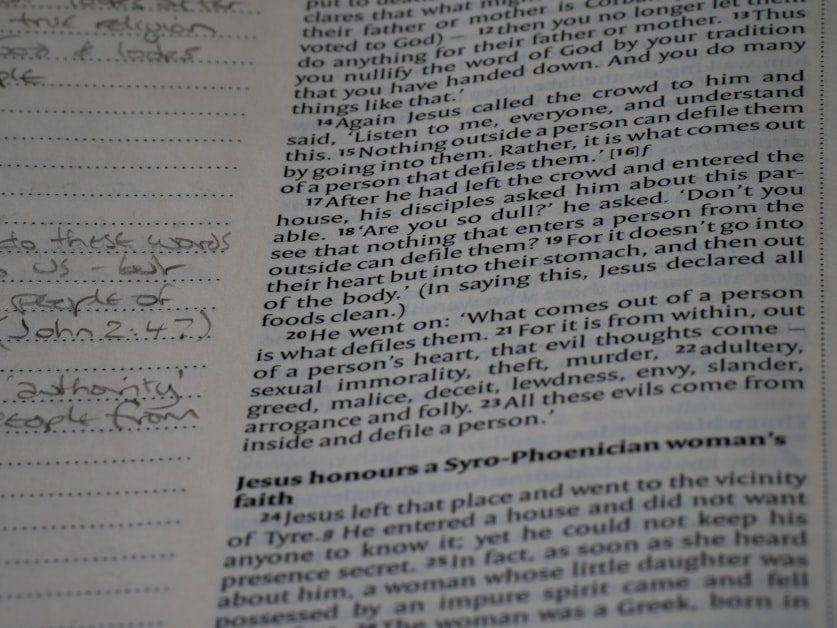 true religion
put to death
clares that what might
their father or mother is Corban
voted to God) – 12then you no longer let them
do anything for their father or mother. 13Thus
you nullify the word of God by your tradition
that you have handed down. And you do many
things like that.'
14Again Jesus called the crowd to him and
said, 'Listen to me, everyone, and understand
this. 15Nothing outside a person can defile them
by going into them. Rather, it is what comes out
of a person that defiles them.' [16]f
17After he had left the crowd and entered the
house, his disciples asked him about this par-
able. 18'Are you so dull?' he asked. 'Don't you
see that nothing that enters a person from the
outside can defile them? 19For it doesn't go into
their heart but into their stomach, and then out
of the body.' (In saying this, Jesus declared all
foods clean.)
20He went on: 'What comes out of a person
is what defiles them. 21For it is from within, out
of a person's heart, that evil thoughts come –
sexual immorality, theft, murder, 22adultery,
greed, malice, deceit, lewdness, envy, slander,
arrogance and folly. 23All these evils come from
inside and defile a person.'
Jesus honours a Syro-Phoenician woman's
faith
24Jesus left that place and went to the vicinity
of Tyre.g He entered a house and did not want
anyone to know it; yet he could not keep his
presence secret. 25In fact, as soon as she heard
about him, a woman whose little daughter was
possessed by an impure spirit came and fell
The woman was a Greek, born in
to these words
us - but
people of
(John 2:4?)
'authority'
people from